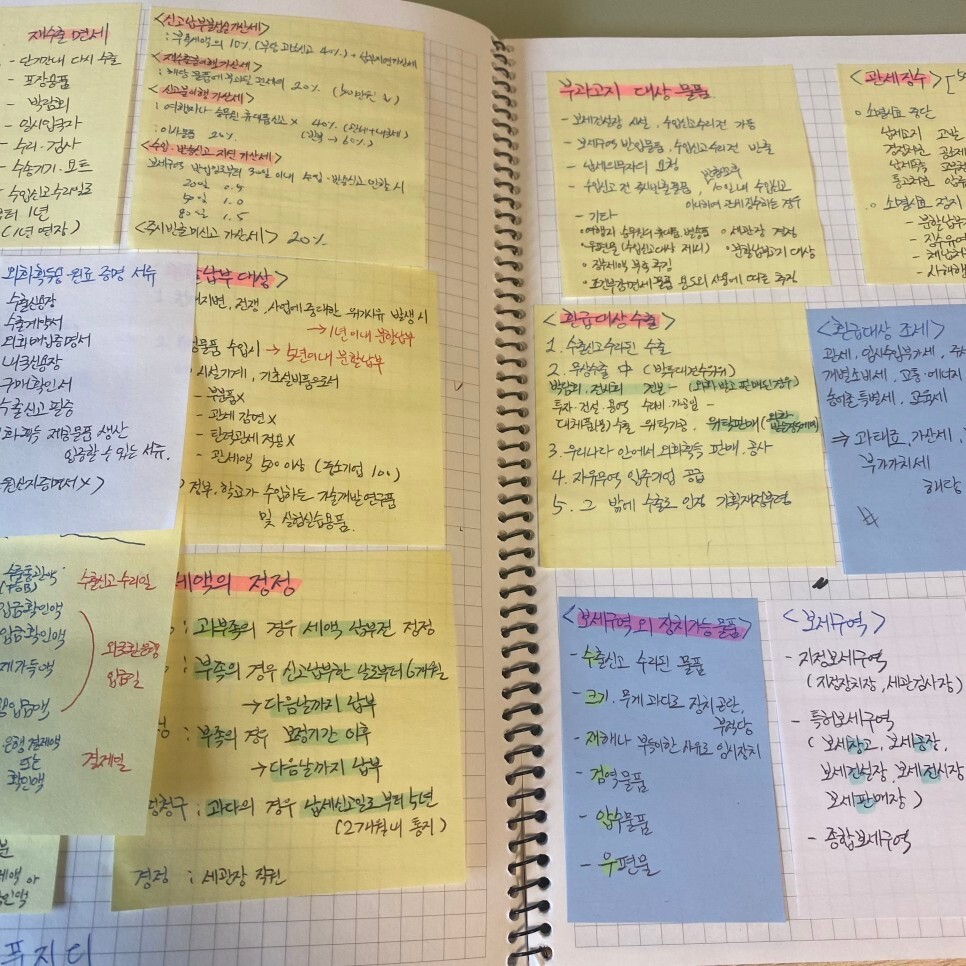 재수출 면세
- 단기간내 다시 수출
- 포장용품
- 박람회
- 일시입국자
- 수리·검사
- 수송기기·요트
수입신고수리일로
부터 1년
(1년 연장)
<신고납부불성실가산세>
: 부족세액의 10% (부당 과소신고 40%) + 납부지연가산세
<재수출불이행가산세>
: 해당 물품에 부과된 관세의 20% (500만원 ↓)
<신고불이행 가산세>
: 여행자나 승무원 휴대품신고 X 40% (관세+내국세)
: 이사물품 20%
(2년 → 60%)
<수입·반송신고 지연 가산세>
보세구역 반입일로부터 30일 이내 수입·반송신고 안할 시
20일 0.5
50일 1.0
80일 1.5
<즉시반출미신고 가산세> 20%
외화획득용 원료 증명 서류
수출신용장
수출계약서
외화매입증명서
내국신용장
구매확인서
수출신고필증
외화획득 제공물품 생산
입증할 수 있는 서류.
원산지증명서 X)
납부 대상>
천재지변, 전쟁, 사업에 중대한 위기사유 발생 시
→ 1년이내 분할납부
물품 수입시 → 5년이내 분할납부
시설기계, 기초설비품으로서
- 부분품 X
- 관세 감면 X
- 탄력관세 적용 X
- 관세액 500 이상 (중소기업 100)
정부, 학교가 수입하는 기술개발연구품
및 실험실습용품.
수출통관액
(FOB)
수출신고수리일
입금확인액
입금확인액
외국환은행
입금일
가득액
입금액
은행 결제액
또는
확인액
결제일
세액의 정정
: 과부족의 경우 세액 납부전 정정
: 부족의 경우 신고납부한 날로부터 6개월
→ 다음날까지 납부
: 부족의 경우 보정기간 이후
→ 다음날까지 납부
청구 : 과다의 경우 납세신고일로부터 5년
(2개월내 통지)
경정 : 세관장 직권
부과고지 대상 물품
- 보세건설장 시설, 수입신고수리전 가동
- 보세구역 반입물품, 수입신고수리전 반출
- 납세의무자의 요청
- 수입신고전 즉시반출물품, 반출후 10일내 수입신고
아니하여 관세징수하는 경우
- 기타
• 여행자 승무원의 휴대품 별송품
• 세관장 결정
• 우편물 (수입신고대상 제외)
• 분할납부고지 대상
• 징수세액 부족 추징
• 조건부감면세 물품 용도외 사용에 따른 추징
<관세징수>
○ 소멸시효 중단
납세고지 고발
경정처분
납세독촉
통고처분 압류
○ 소멸시효 정지
- 분할납부
- 징수유예
- 사해행
<환급대상수출>
1. 수출신고수리된 수출
2. 무상수출 中 (박투대견수위위)
박람회, 전시회 견본 - (외화 받고 판매된 경우)
투자·건설·용역 수리비·가공임 -
대체품(물품)수출 위탁가공, 위탁판매(외화
3. 우리나라 안에서 외화획득 판매·공사
4. 자유무역 입주기업 공급
5. 그 밖에 수출로 인정 기획재정부령
<환급대상 조세>
관세, 임시수입부가세, 주세
개별소비세, 교통·에너지
농어촌특별세, 교육세
⇒ 과태료, 가산세,
부가가치세
해당
<보세구역 외 장치가능물품>
- 수출신고 수리된 물품
- 크기·무게 과다로 장치 곤란,
부적당
- 재해나 부득이한 사유로 임시장치
- 검역물품
- 압수물품
- 우편물
<보세구역>
- 지정보세구역
(지정장치장, 세관검사장)
- 특허보세구역
(보세창고, 보세공장,
보세건설장, 보세전시장
보세판매장)
- 종합보세구역